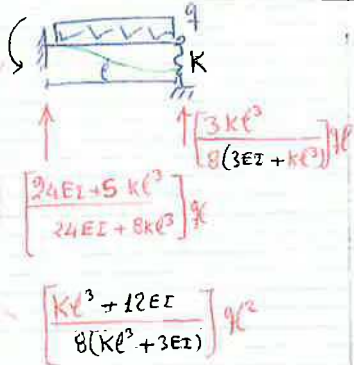 q
K
ℓ
[3Kℓ³ / 8(3EI + Kℓ³)] qℓ
[24EI + 5Kℓ³ / 24EI + 8Kℓ³] qℓ
[Kℓ³ + 12EI / 8(Kℓ³ + 3EI)] qℓ²